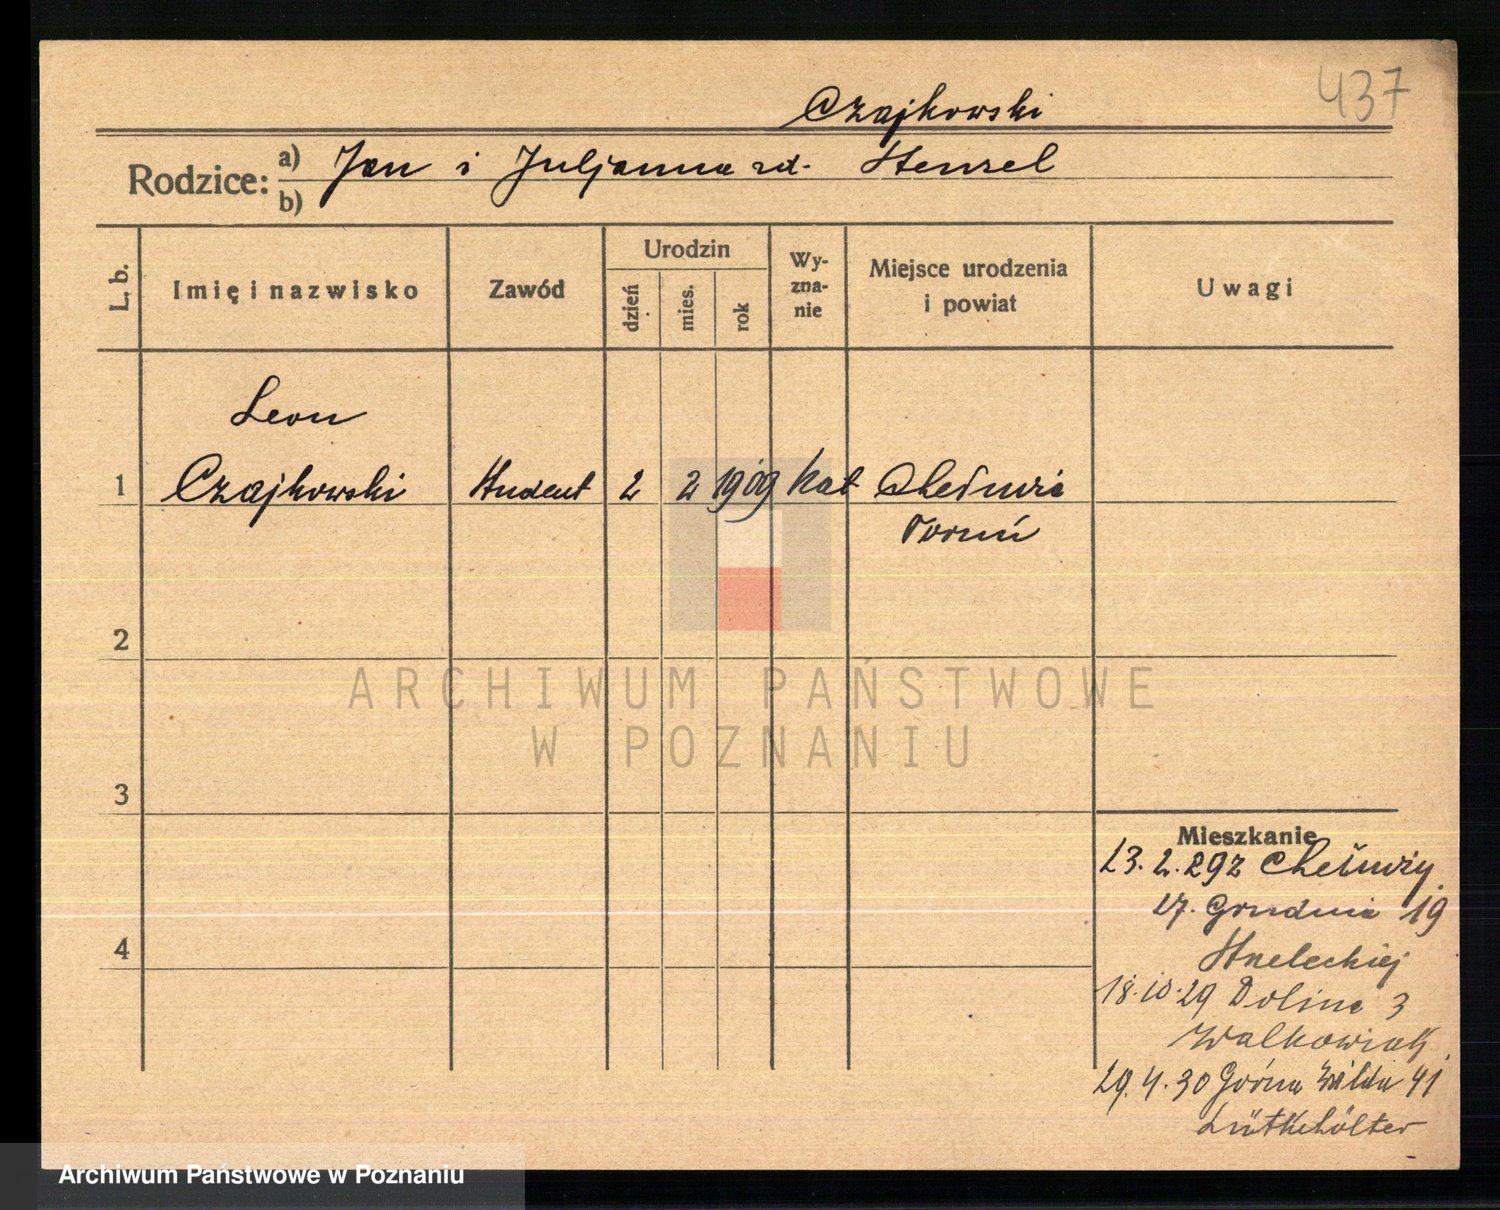 437
Czajkowski
Rodzice: a) Jan i Juljanna zd. Henzel
b)
L. b.
Imię i nazwisko
Zawód
Urodzin
dzień
mies.
rok
Wy-
zna-
nie
Miejsce urodzenia
i powiat
Uwagi
Leon
1 Czajkowski Student 2 2 1909 kat Chełmża
Toruń
2
3
4
ARCHIWUM PAŃSTWOWE
W POZNANIU
Mieszkanie
23.2.29 z Chełmży
27. Grudnia 19
Strzeleckiej
18.10.29 Dolina 3
Walkowiak
29.4.30 Górna Wilda 41
Lütkehölter
Archiwum Państwowe w Poznaniu